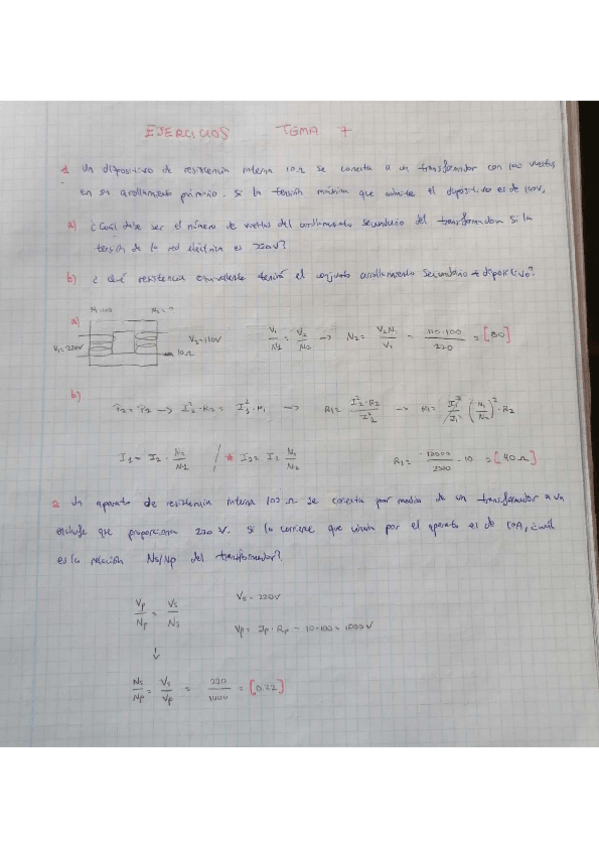 EJERCICIOS TEMA 7
1 Un dispositivo de resistencia interna 10Ω se conecta a un transformador con 100 vueltas
en su arollamiento primario. Si la tensión máxima que admite el dispositivo es de 110V,
a) ¿Cuál debe ser el número de vueltas del arrollamiento secundario del transformador si la
tensión de la red eléctrica es 220V?
b) ¿Qué resistencia equivalente tendrá el conjunto arollamiento secundario + dispositivo?
N1=100 N2=?
a)
V1=220V V2=110V 10Ω
V1/N1 = V2/N2 → N2= V2N1/V1 = 110·100/220 = [50]
b)
→ I2²·R2 = I1²·R1 → R1= → R1= I1²/I1² (N1/N2)²·R2
I1 = I2 · N2/N1 / * I2= I1 N1/N2
R1= ·10 = [40Ω]
2 Un aparato de resistencia interna 100Ω se conecta por medio de un transformador a un
enchufe que proporciona 220V. Si la corriente que circula por el aparato es de 10A, ¿cuál
es la relación Ns/Np del transformador?
Vp/Np = Vs/Ns Vs=220V
Vp= Ip·Rp = 10·100=1000V
↓
Ns/Np = Vs/Vp = 220/1000 = [0.22]